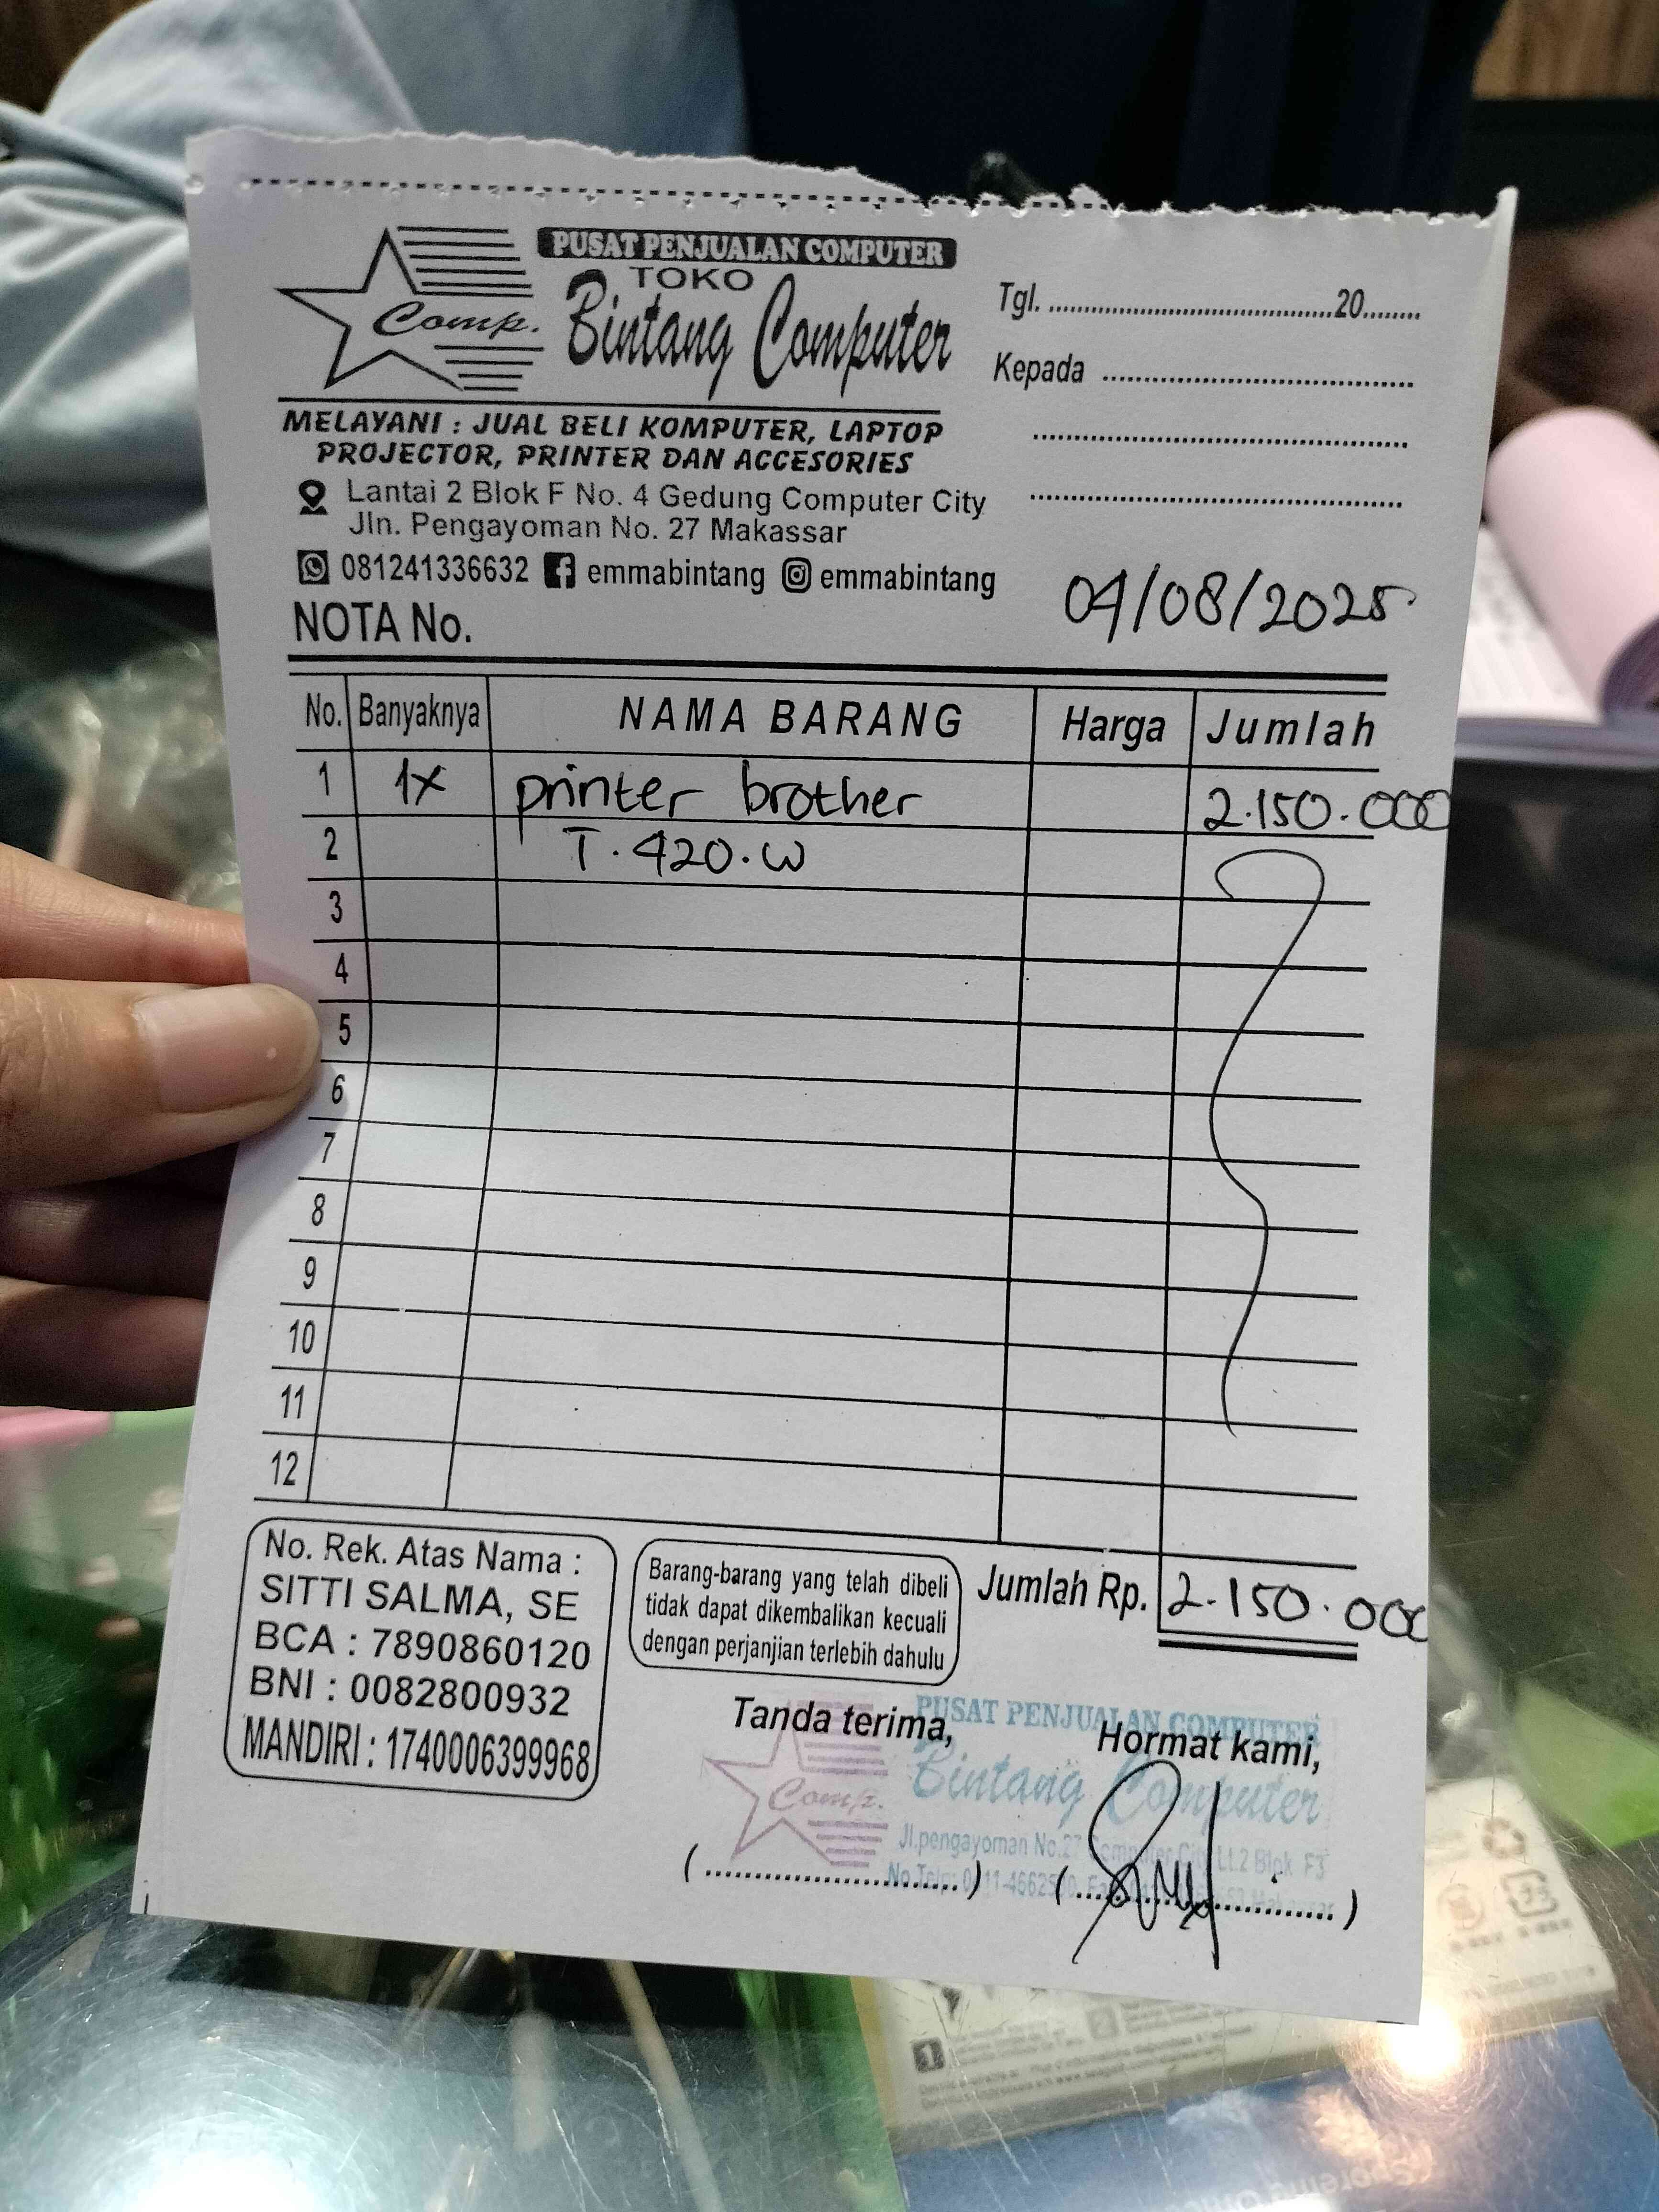 PUSAT PENJUALAN COMPUTER
TOKO
Comp. Bintang Computer
Tgl. ........................................20........
Kepada ........................................
MELAYANI : JUAL BELI KOMPUTER, LAPTOP
PROJECTOR, PRINTER DAN ACCESORIES
Lantai 2 Blok F No. 4 Gedung Computer City
Jln. Pengayoman No. 27 Makassar
081241336632 emmabintang emmabintang
04/08/2025
NOTA No.
No. Banyaknya NAMA BARANG Harga Jumlah
1 1x printer brother 2.150.000
2 T.420.W
3
4
5
6
7
8
9
10
11
12
Jumlah Rp. 2.150.000
No. Rek. Atas Nama :
SITTI SALMA, SE
BCA : 7890860120
BNI : 0082800932
MANDIRI : 1740006399968
Barang-barang yang telah dibeli
tidak dapat dikembalikan kecuali
dengan perjanjian terlebih dahulu
Tanda terima,
Hormat kami,
PUSAT PENJUALAN COMPUTER
Comp. Bintang Computer
Jl.pengayoman No.27 Computer City Lt.2 Blok F3